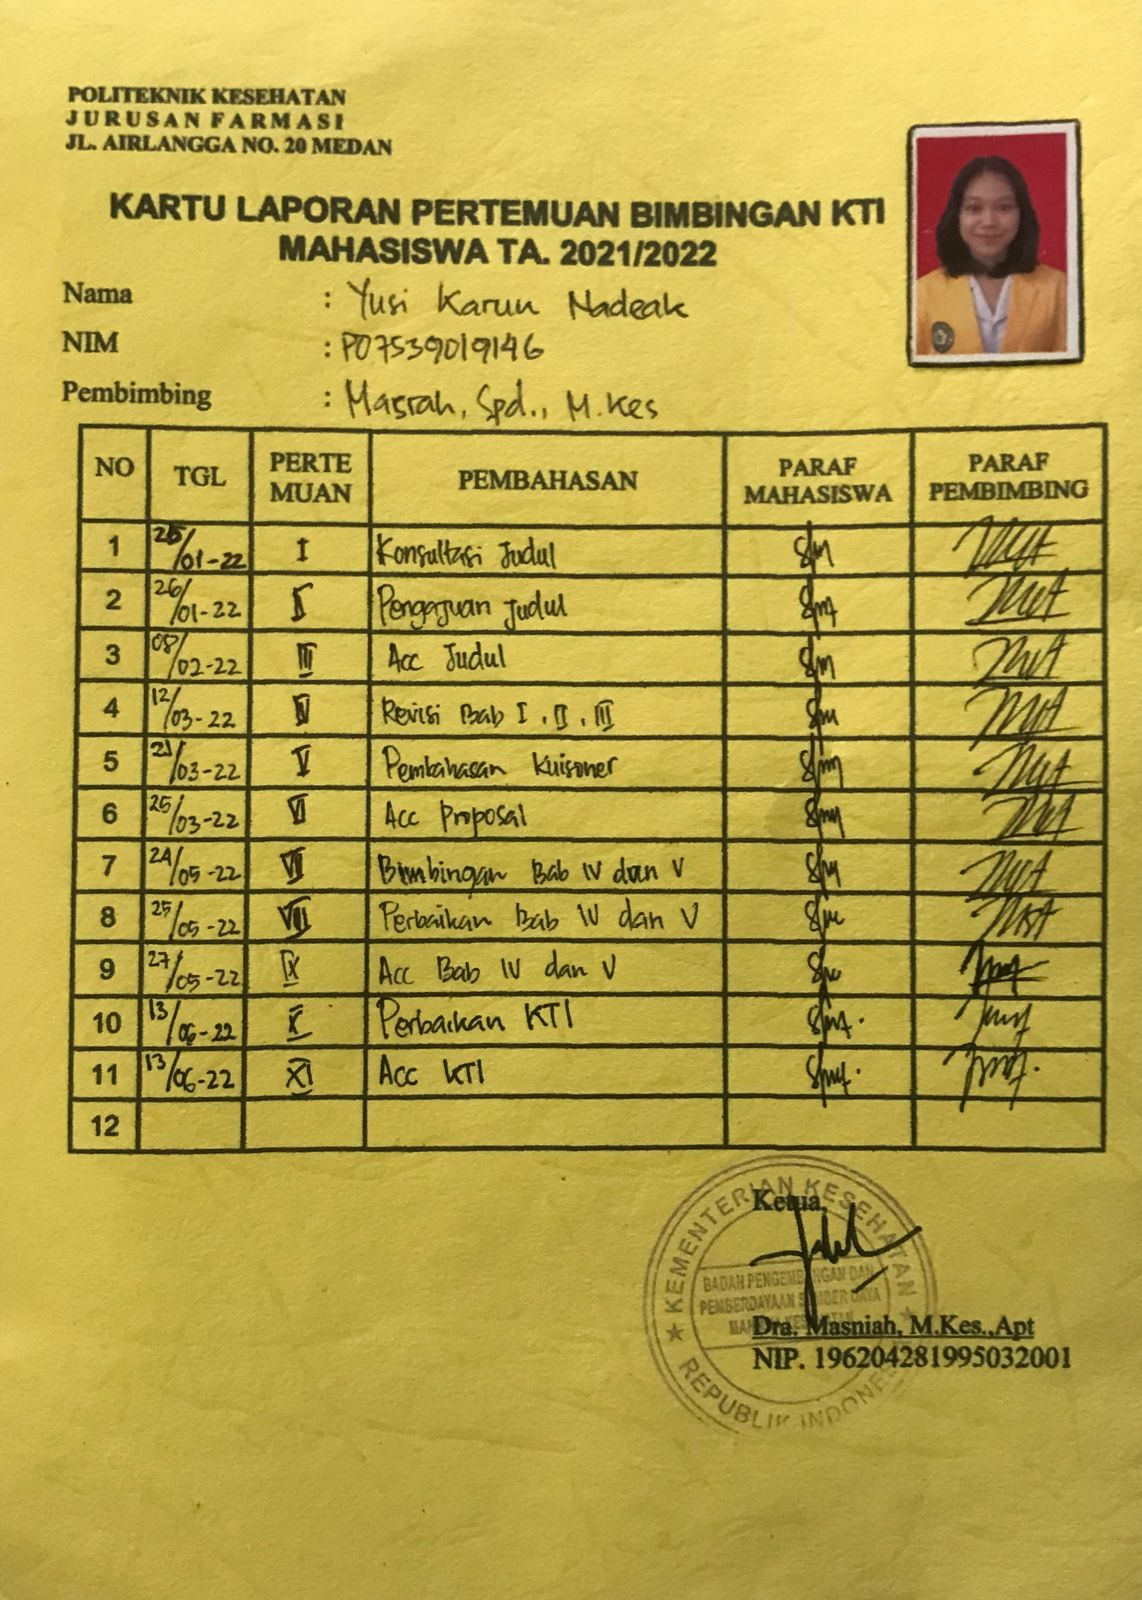 POLITEKNIK KESEHATAN
JURUSAN FARMASI
JL. AIRLANGGA NO. 20 MEDAN
KARTU LAPORAN PERTEMUAN BIMBINGAN KTI
MAHASISWA TA. 2021/2022
Nama : Yusi Karun Nadeak
NIM : P07539019146
Pembimbing : Masrah, Spd., M.Kes
NO TGL PERTE MUAN PEMBAHASAN PARAF MAHASISWA PARAF PEMBIMBING
1 25/01-22 I Konsultasi Judul
2 26/01-22 II Pengajuan Judul
3 08/02-22 III Acc Judul
4 12/03-22 IV Revisi Bab I, II, III
5 21/03-22 V Pembahasan Kuisoner
6 25/03-22 VI Acc Proposal
7 24/05-22 VII Bimbingan Bab IV dan V
8 25/05-22 VIII Perbaikan Bab IV dan V
9 27/05-22 IX Acc Bab IV dan V
10 13/06-22 X Perbaikan KTI
11 13/06-22 XI Acc KTI
12
Ketua,
KEMENTERIAN KESEHATAN
BADAN PENGEMBANGAN DAN
PEMBERDAYAAN SUMBER DAYA
REPUBLIK INDONESIA
Dra. Masniah, M.Kes.,Apt
NIP. 196204281995032001